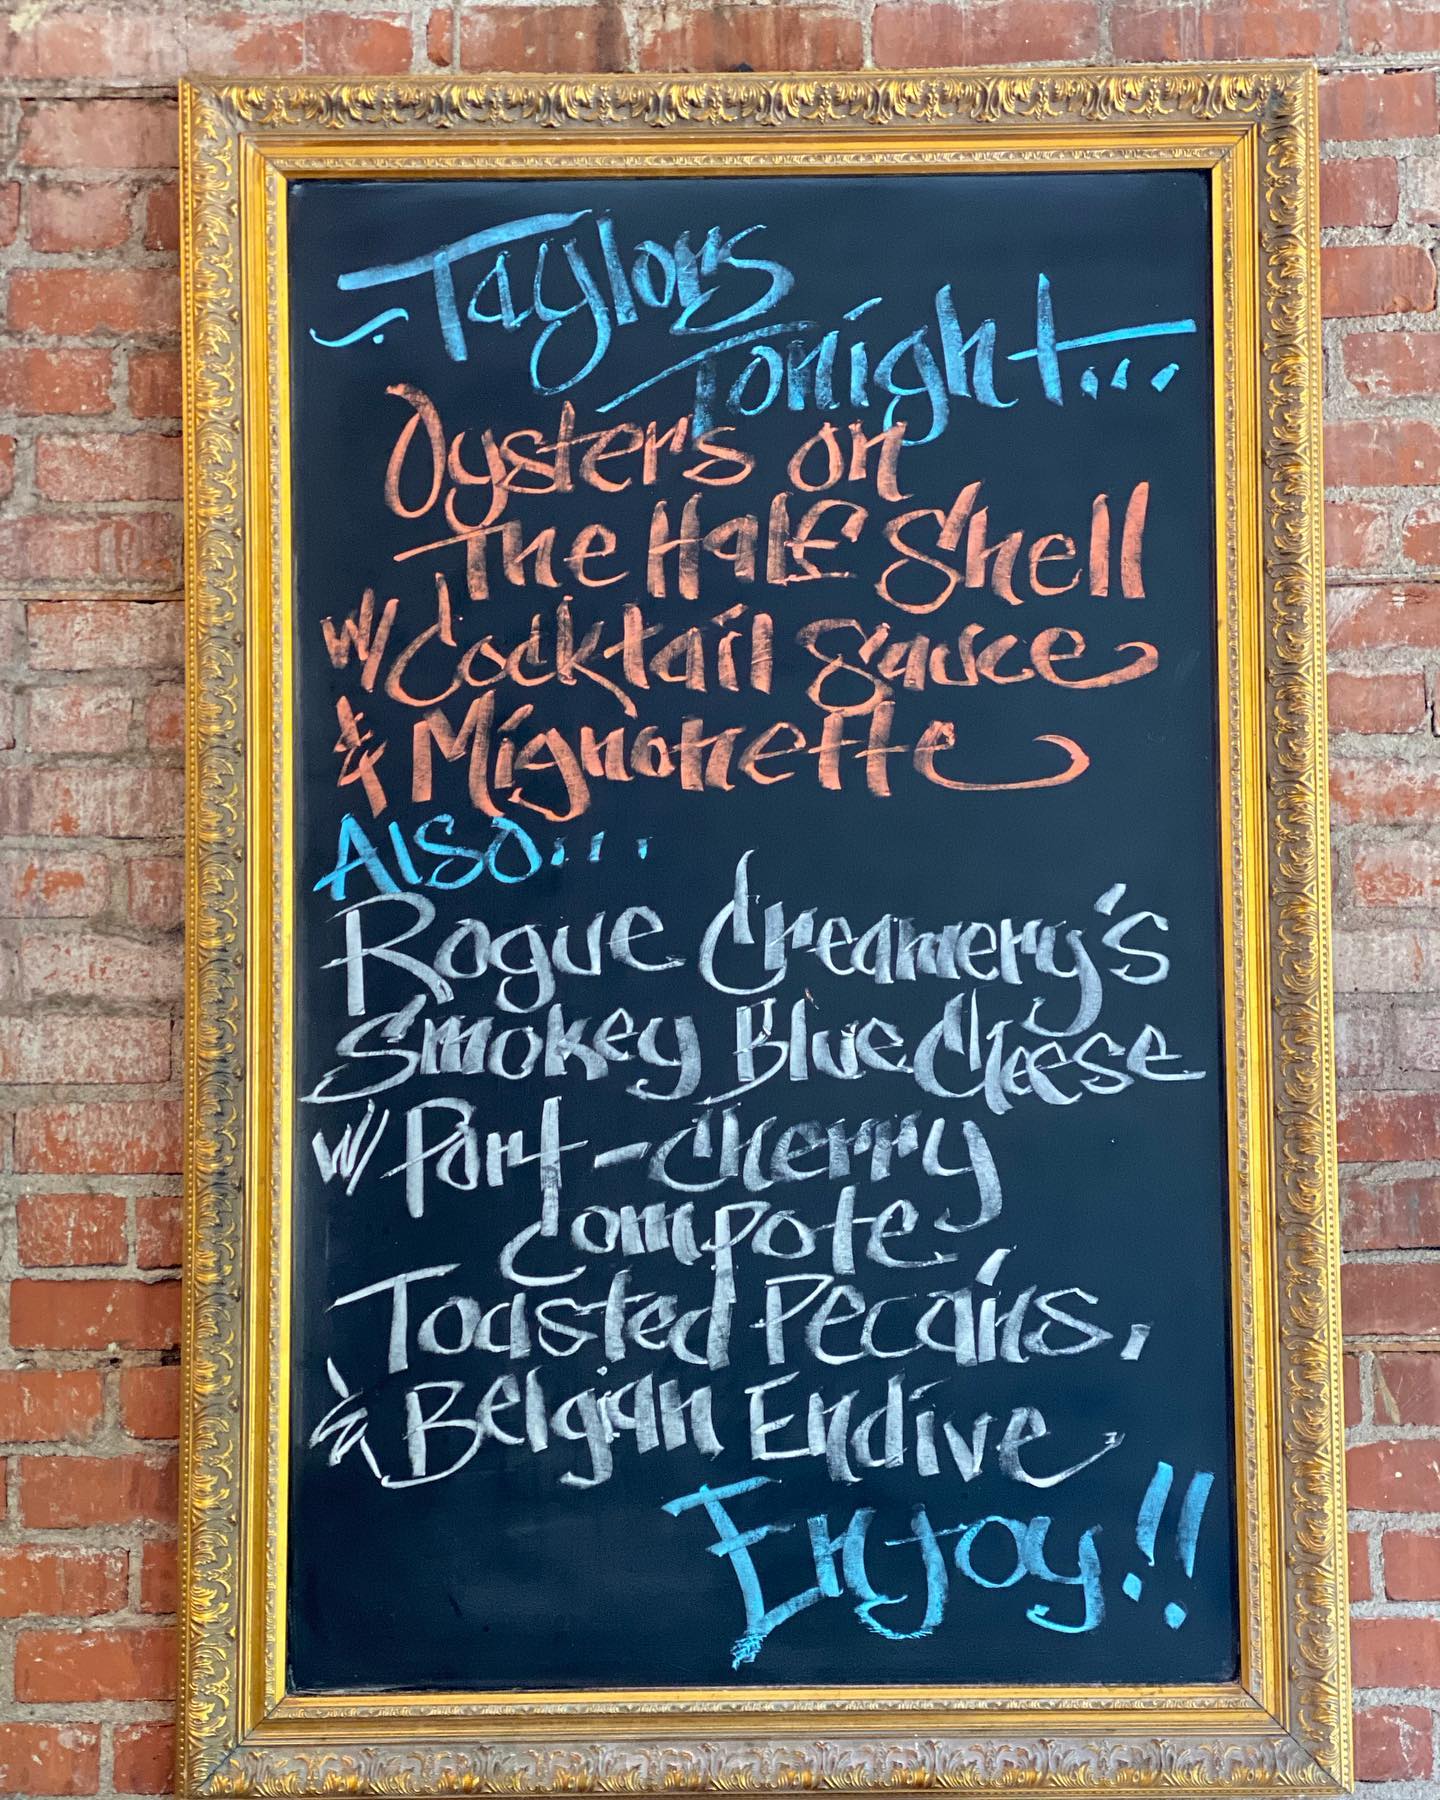 ~Taylors
Tonight...
Oysters on
The Half Shell
w/ Cocktail Sauce
& Mignonette
Also...
Rogue Creamery's
Smokey Blue Cheese
w/ Port-Cherry
Compote
Toasted Pecans,
& Belgian Endive
Enjoy!!